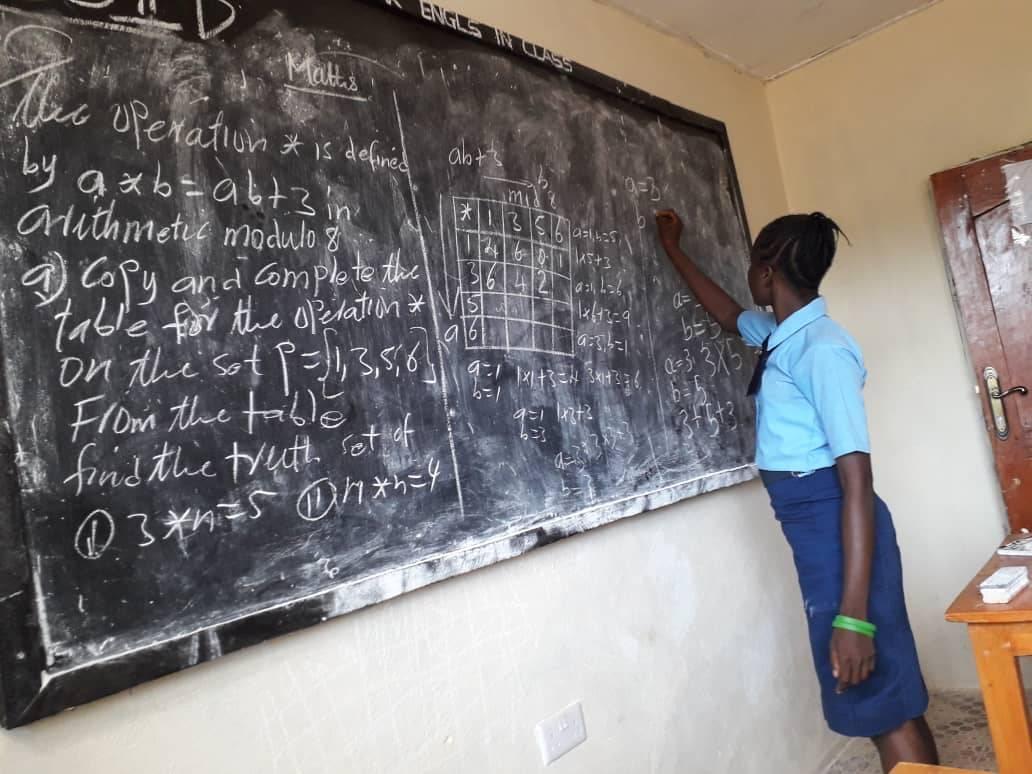 ENGLS IN CLASS
Maths
The operation * is defined
by a * b = ab + 3 in
arithmetic modulo 8
a) Copy and complete the
table for the operation *
on the set P = {1, 3, 5, 6}
From the table
find the truth set of
① 3 * n = 5 ① n * n = 4
ab + 3
b
mod 8
* 1 3 5 6
1 4 6 0 1
3 6 4 2
5
a 6
a=1, b=5,
1x5+3
a=1, b=6
1x6+3=9
a=3, b=1
3x1+3=6
a=1
b=1
1x1+3=4
a=1
b=3
1x3+3
a=3
a=3
a=3
b=5
3x5
3+5+3